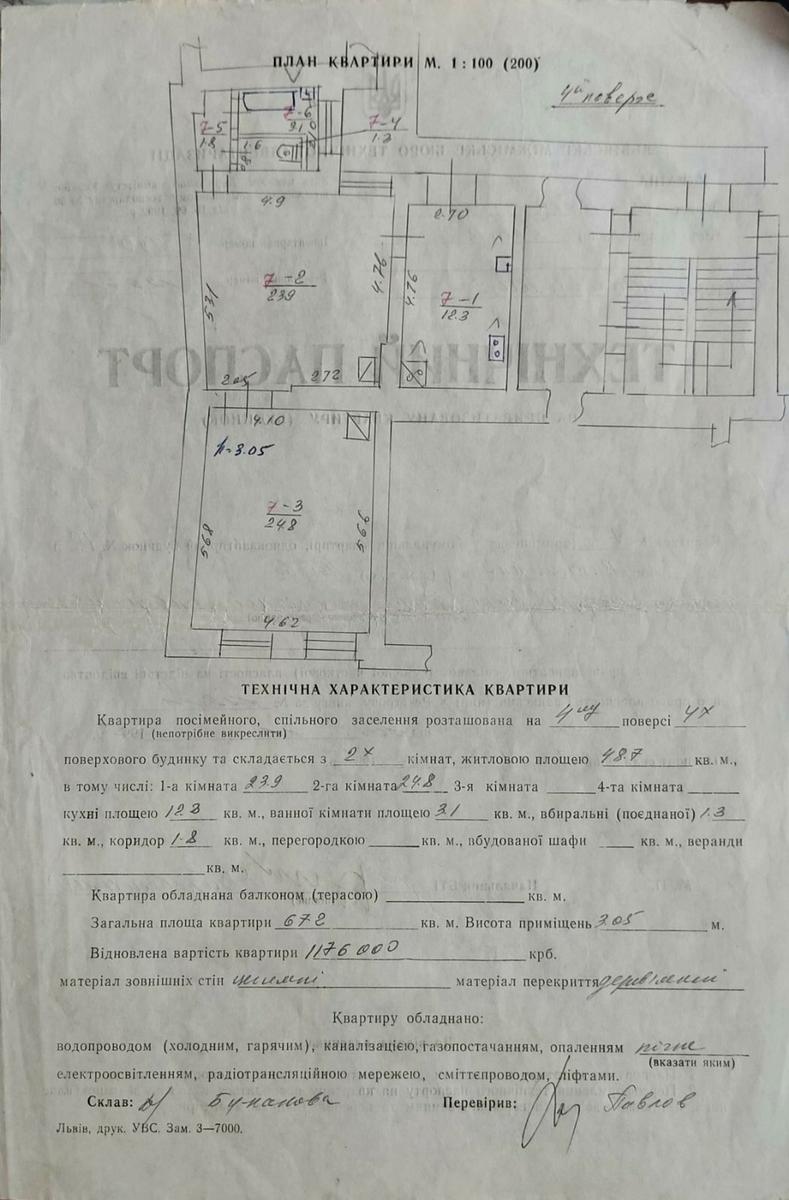 ПЛАН КВАРТИРИ М. 1 : 100 (200)
4й поверх
7-5
1.8
7-6
3.1
7-4
1.3
1.6
4.9
2.70
5.31
7-2
23.9
4.76
4.76
7-1
12.3
2.05
2.72
4.10
h-3.05
7-3
24.8
5.68
5.65
4.62
ТЕХНІЧНА ХАРАКТЕРИСТИКА КВАРТИРИ
Квартира посімейного, спільного заселення розташована на 4му поверсі 4х
(непотрібне викреслити)
поверхового будинку та складається з 2х кімнат, житловою площею 48.7 кв. м.,
в тому числі: 1-а кімната 23.9 2-га кімната 24.8 3-я кімната 4-та кімната
кухні площею 12.3 кв. м., ванної кімнати площею 3.1 кв. м., вбиральні (поєднаної) 1.3
кв. м., коридор 1.8 кв. м., перегородкою кв. м., вбудованої шафи кв. м., веранди
кв. м.
Квартира обладнана балконом (терасою) кв. м.
Загальна площа квартири 67.2 кв. м. Висота приміщень 3.05 м.
Відновлена вартість квартири 1176000 крб.
матеріал зовнішніх стін матеріал перекриття
Квартиру обладнано:
водопроводом (холодним, гарячим), каналізацією, газопостачанням, опаленням пічне
(вказати яким)
електроосвітленням, радіотрансляційною мережею, сміттєпроводом, ліфтами.
Склав: Перевірив: Павлов
Львів, друк. УВС. Зам. 3—7000.